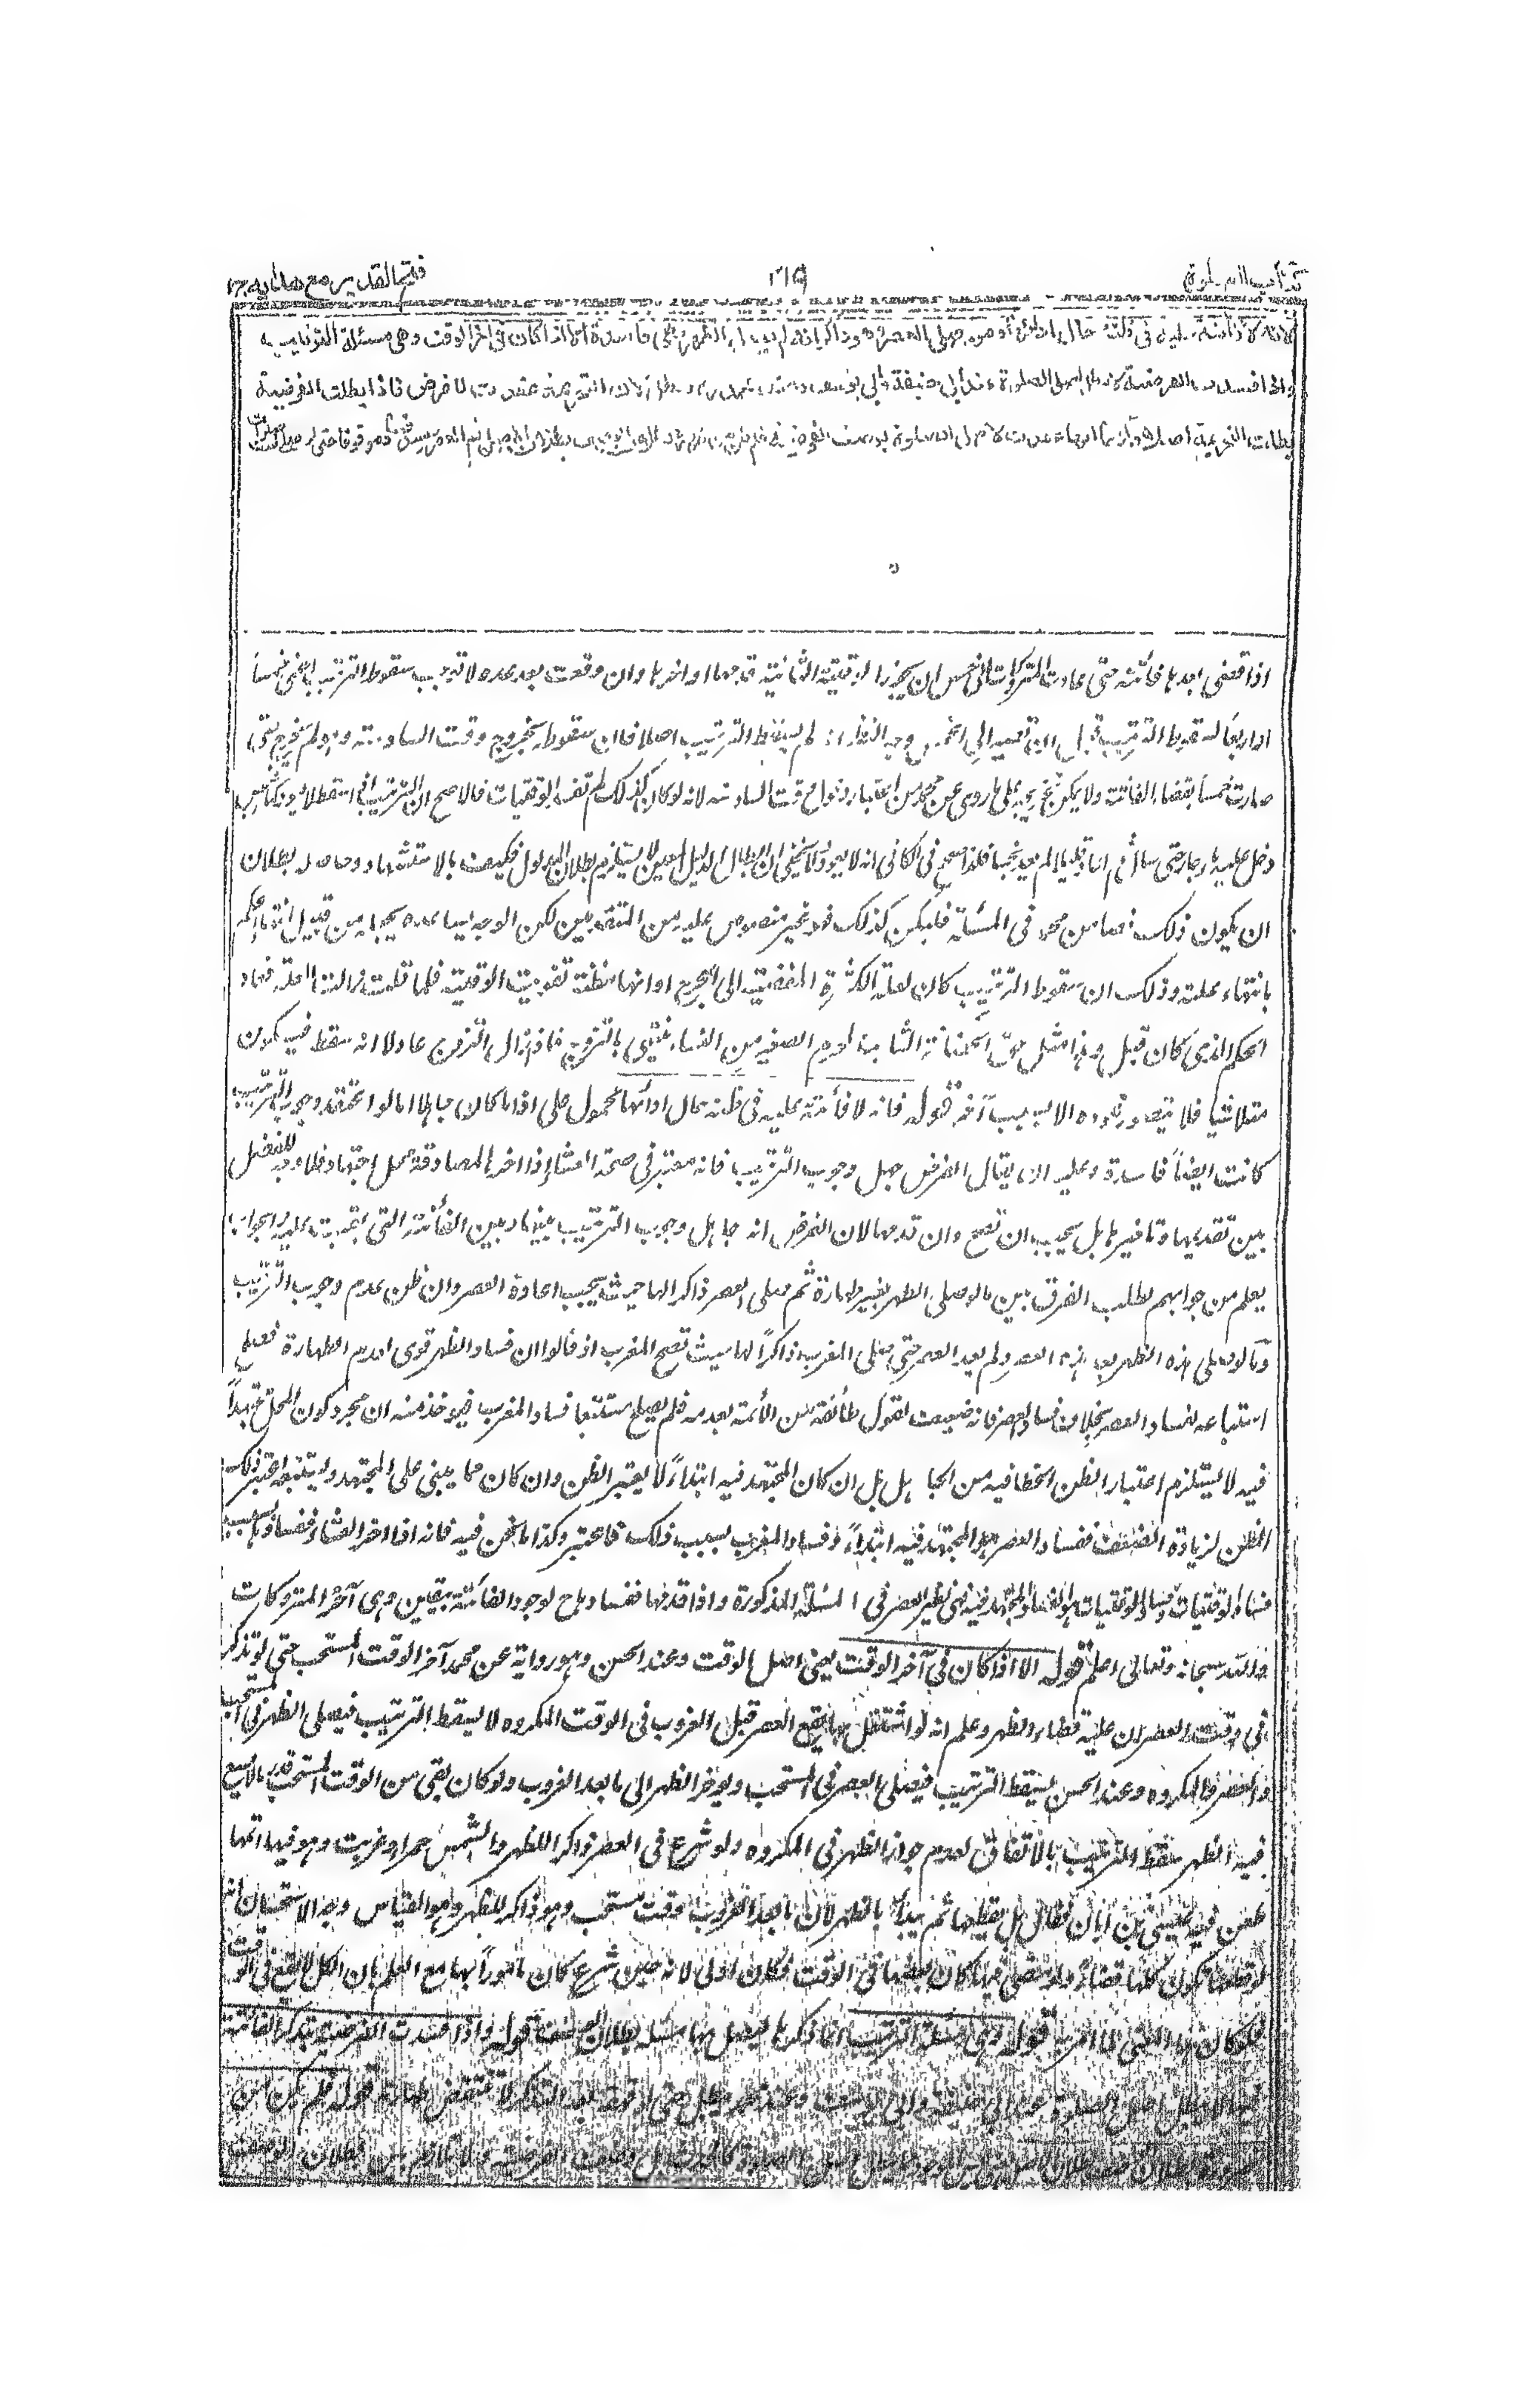 كتاب الصلوة
٢١٩
فتح القدير مع هدايه ج١
لانه لا فائتة عليه في ظنه حال ادائها ومن صلى العصر وهو ذاكر انه لم يصل الظهر فهي فاسدة الا اذا كان في آخر الوقت وهي مسئلة الترتيب
واذا فسدت الفرضية لا يبطل اصل الصلوة عند ابي حنيفة وابي يوسف وعند محمد يبطل لان التحريمة عقدت للفرض فاذا بطلت الفرضية
بطلت التحريمة اصلا ولهما انها عقدت لاصل الصلوة بوصف الفرضية فلم يكن من ضرورة بطلان الوصف بطلان الاصل ثم العصر يفسد فسادا موقوفا حتى لو صلى ست صلوات
اذا قضى بعدها فائتة حتى عادت المتروكات الى خمس ان يجوز الوقتية الثانية قدمها او اخرها وان وقعت بعد عدة لا توجب سقوط الترتيب اعني خمسا
او اربعا لسقوط الترتيب قبل ان تصير الى الخمس وجه النظر انه لم يسقط الترتيب اصلا فان سقوطه بخروج وقت السادسة وهو لم يخرج حتى
صارت خمسا بقضاء الفائتة ولا يمكن تخريجه على ما روى عن محمد من اعتبار دخول وقت السادسة لانه لو كان كذلك لم تفسد الوقتيات فالاصح ان الترتيب اذا سقط لا يعود كماء نجس
دخل عليه ماء جار حتى سال ثم اناء قليلا لم يعد نجسا فلذا صحح في الكافي انه لا يعود ولا يخفى ان ابطال الدليل المعين لا يستلزم بطلان المدلول فكيف بالاستشهاد وحاصله بطلان
ان يكون ذلك نصا من محمد في المسئلة فليكن كذلك فهو غير منصوص عليه من المتقدمين لكن الوجه يساعده بجعله من قبيل انتهاء الحكم
بانتهاء علته وذلك ان سقوط الترتيب كان لعلة الكثرة المفضية الى الحرج او انها مظنة تفويت الوقتية فلما قلت زالت العلة فعاد
الحكم الذي كان قبل وهذا مثل حق الحضانة الثابتة لمحرم الصغير من النساء ينتهي بالتزوج فاذا زال التزوج عاد لا انه سقط فيكون
متلاشيا فلا يتصور عوده الا بسبب آخر قوله فانه لا فائتة عليه في ظنه حال ادائها محمول على اذا ما كان جاهلا اما لو اعتقد وجوب الترتيب
كانت ايضا فاسدة وعليه ان يقال الفرض جهل وجوب الترتيب فانه معتبر في صحة العشاء اذا اخرها لمصادفة محل اجتهاد فلا وجه للفصل
بين تقديمها وتاخيرها بل يجب ان تصح وان قدمها لان الفرض انه جاهل وجوب الترتيب بينها وبين الفائتة التي بقيت عليه والجواب
يعلم من جوابهم لطلب الفرق بين ما لو صلى الظهر بغير طهارة ثم صلى العصر ذاكرا لها حيث يجب اعادة العصر وان ظن عدم وجوب الترتيب
وما لو صلى هذه الظهر بعد هذه العصر ولم يعد العصر حتى صلى المغرب ذاكرا لها حيث تصح المغرب اذ قالوا ان فساد الظهر قوى لعدم الطهارة فصلح
استتباعه لفساد العصر بخلاف فساد العصر فانه ضعيف لقول طائفة من الائمة بعدمه فلم يصلح مستتبعا فساد المغرب فيؤخذ منه ان مجرد كون المحل مجتهدا
فيه لا يستلزم اعتبار الظن الخطا فيه من الجاهل بل ان كان المجتهد فيه ابتداء لا يعتبر الظن وان كان مما يبنى على المجتهد ويستتبعه اعتبر ذلك
الظن لزيادة الضعف ففساد العصر هو المجتهد فيه ابتداء وفساد المغرب بسبب ذلك فاعتبر وكذا ما نحن فيه فانه اذا اخر العشاء ففسادها بسبب
فساد الوقتيات وفساد الوقتيات هو الفساد المجتهد فيه فهي نظير العصر في المسئلة المذكورة واذا قدمها ففسادها ح لوجود الفائتة بيقين وهي آخر المتروكات
والله سبحانه وتعالى اعلم قوله الا اذا كان في آخر الوقت يعني اصل الوقت وعند الحسن وهو رواية عن محمد آخر الوقت المستحب حتى لو تذكر
في وقت العصر ان عليه قضاء الظهر وعلم انه لو اشتغل بها يقع العصر قبل الغروب في الوقت المكروه لا يسقط الترتيب فيصلى الظهر في المستحب
والعصر في المكروه وعند الحسن يسقط الترتيب فيصلي العصر في المستحب ويؤخر الظهر الى ما بعد الغروب ولو كان بقى من الوقت المستحب قدر ما لا يسع
فيه الظهر سقط الترتيب بالاتفاق لعدم جواز الظهر في المكروه ولو شرع في العصر ذاكرا للظهر والشمس حمراء وغربت وهو فيها اتمها
طعن فيه عيسى بن ابان فقال بل يقطعها ثم يبدأ بالظهر لان ما بعد الغروب وقت مستحب وهو ذاكر للظهر وهو القياس وجه الاستحسان انه
لو قطعها تكون كلها قضاء ولو مضى فيها كان بعضها في الوقت فكان اولى لانه حين شرع كان مامورا بها مع العلم بان الكل لا يقع في الوقت
قوله وهي مسئلة الترتيب انما ذكرها ليفصل بها مسئلة بطلان الوصف قوله واذا فسدت الفرضية